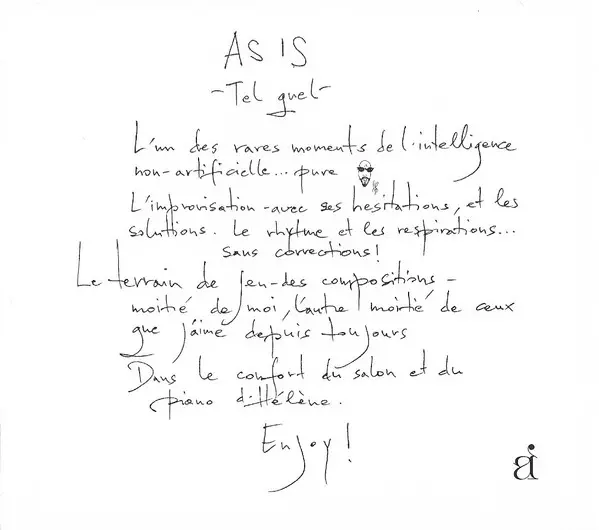 AS IS
-Tel quel-
L'un des rares moments de l'intelligence
non-artificielle... pure
L'improvisation-avec ses hesitations, et les
solutions. Le rhytme et les respirations...
sans corrections!
Le terrain de jeu-des compositions-
moitié de moi, l'autre moitié de ceux
que j'aime depuis toujours
Dans le comfort du salon et du
piano d'Hélène.
Enjoy!